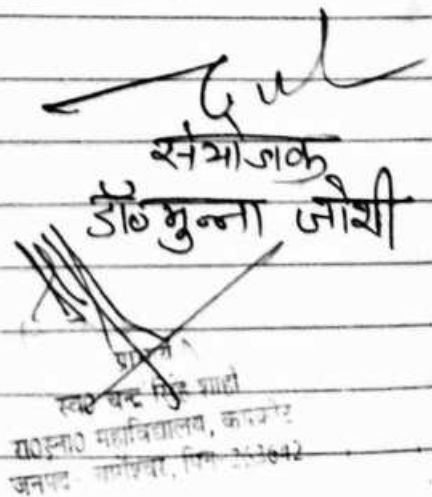 संयोजक
डॉ० मुन्ना जोशी
प्राचार्य
स्व० चन्द्र सिंह शाही
रा०स्ना० महाविद्यालय, कपकोट
जनपद बागेश्वर, पिन 263642